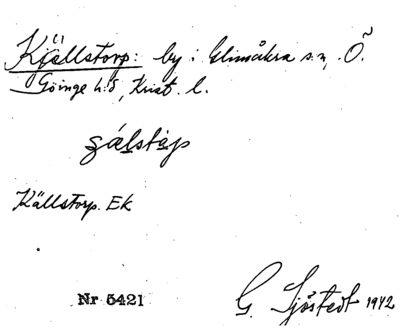 Källstorp: by i Glimåkra sn, Ö.
Göinge hd, Krist. l.
sálstap
Källstorp. Ek
Nr 5421
G. Sjöstedt 1942